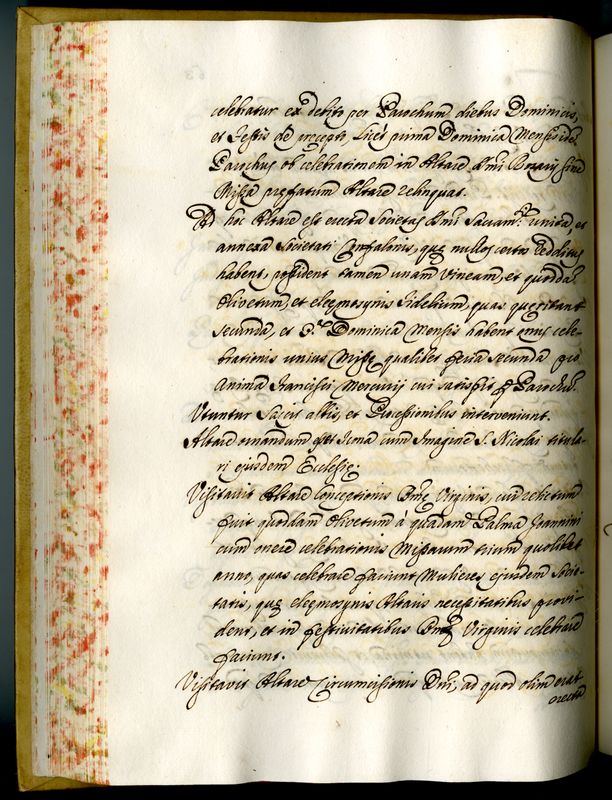 celebratur ex debito per Parochum diebus Dominicis,
et Festis de precepto, licet prima Dominica Mensis idem
Parochus ob celebrationem in Altare SSmi Rosarij sine
Missa prefatum Altare relinquat.
Ad hoc Altare est erecta Societas SSmi Sacram.ti unita, et
annexa Societati Confalonis, quę nullos certos redditus
habent, possident tamen unam Vineam, et quoddã
Olivetum, et eleęmosynis Fidelium, quas quęritant
secunda, et 3.a Dominica Mensis habent onus cele-
brationis unius Missę qualibet feria secunda pro
Anima Francisci Mercurij cui satisfit per Parochũ.
Utuntur Saccis albis, et Processionibus interveniunt.
Altare ornandum est Icona cum Imagine S. Nicolai titula-
ri ejusdem Ecclesię.
Visitavit Altare Conceptionis Bmę Virginis, cui relictum
fuit quoddam Olivetum à quadam Palma Joannini
cum onere celebrationis Missarum trium quolibet
anno, quas celebrare faciunt Mulieres ejusdem Socie-
tatis, quę eleęmosynis Altaris necessitatibus provi-
dent, et in festivitatibus Bmę Virginis celebrare
faciunt.
Visitavit Altare Circumcisionis Dñi, ad quod olim erat
erecta